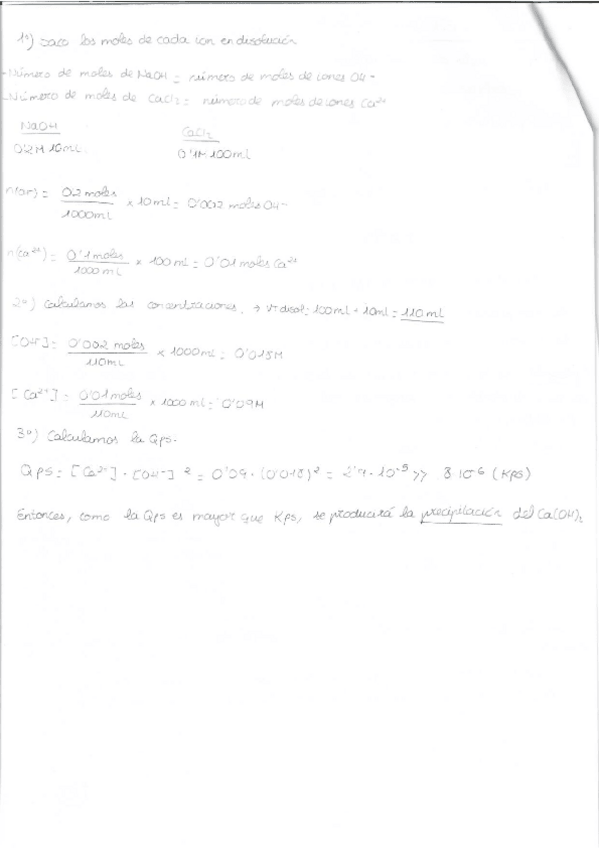 1º) saco los moles de cada ion en disolución
- Número de moles de NaOH = número de moles de iones OH-
- Número de moles de CaCl2 = número de moles de iones Ca2+
NaOH CaCl2
0'2M 10mL 0'1M 100ml
n(OH-) = 0'2 moles / 1000mL × 10ml = 0'002 moles OH-
n(Ca2+) = 0'1 moles / 1000 mL × 100 mL = 0'01 moles Ca2+
2º) Calculamos las concentraciones. → V disol = 100ml + 10ml = 110 ml
[OH-] = 0'002 moles / 110mL × 1000ml = 0'018M
[Ca2+] = 0'01 moles / 110mL × 1000 ml = 0'09M
3º) Calculamos la Qps.
Qps = [Ca2+] · [OH-]2 = 0'09 · (0'018)2 = 2'9 · 10-5 >> 8 10-6 (Kps)
Entonces, como la Qps es mayor que Kps, se producirá la precipitación del Ca(OH)2